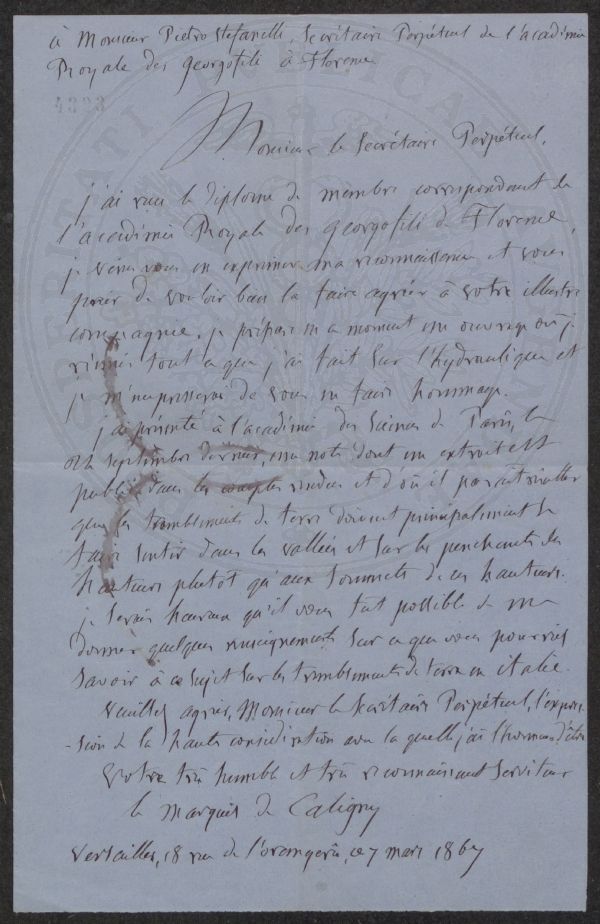 à Monsieur Pietro Stefanelli, Secrétaire Perpétuel de l'académie
Royale des georgofili à Florence
4323
Monsieur le Secrétaire Perpétuel,
j'ai reçu le diplome de membre correspondant de
l'académie Royale des georgofili de Florence,
je viens vous en exprimer ma reconnaissance et vous
prier de vouloir bien la faire agréer à votre illustre
compagnie. je prépare en ce moment un ouvrage où je
réunis tout ce que j'ai fait sur l'hydraulique et
je m'empresserai de vous en faire hommage.
j'ai présenté à l'académie des Sciences de Paris, le
septembre dernier, une note dont un extrait est
publié dans les comptes rendus et d'où il paraît résulter
que les tremblements de terre doivent principalement se
faire sentir dans les vallées et sur les penchants des
hauteurs plutôt qu'aux sommets de ces hauteurs.
je serais heureux qu'il vous fut possible de me
donner quelques renseignements sur ce que vous pourriez
savoir à ce sujet sur les tremblements de terre en italie.
Veuillez agréer, Monsieur le Secrétaire Perpétuel, l'expres-
-sion de la haute considération avec la quelle j'ai l'honneur d'être
votre très humble et très reconnaissant serviteur
le marquis de Caligny
Versailles, 18 rue de l'orangerie, ce 7 mars 1867